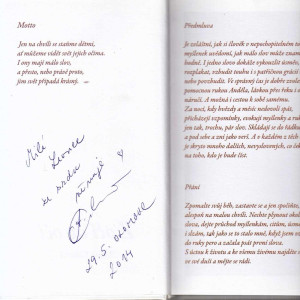 Motto
Jen na chvíli se staňme dětmi,
ať můžeme vidět svět jejich očima.
I ony mají málo slov,
a přesto, nebo právě proto,
jim svět připadá krásný.
Milé Leonce
ze srdce
věnuje
29.5. Olomouc
2014
Předmluva
Je zvláštní, jak si člověk v nepochopitelném
myšlenek uvědomí, jak málo slov může znamen
hodně. I jedno slovo dokáže vykouzlit úsměv,
rozplakat, vzbudit touhu i s patřičnou grácií
nebo povzbudit. Ve správný čas je dobře zvole
pomocnou rukou Anděla, láskou přes řeku i
náručí. A možná i cestou k sobě samému.
Za nocí, kdy hvězdy a měsíc nedovolí spát,
přicházejí vzpomínky, evokují myšlenky a ruk
jen tak, trochu, pár slov. Skládají se do řádků
a odkládají do šuplíku. A tak, ve chvíli, kdy oč
se otevřou mnoho dalších, nevyslovených, co
řádků, kde je bude číst.
Přání
Zpomalte svůj běh, zastavte se a jen spočiňte,
alespoň na malou chvíli. Nechte plynout okol
slova, dejte průchod myšlenkám, citům, úsm
i slzám, tak jako se to stalo mně, když jsem
do ruky pero a začala psát první slova.
S úctou k životu a ke všemu živému najděte
ve své duši a mějte se rádi.